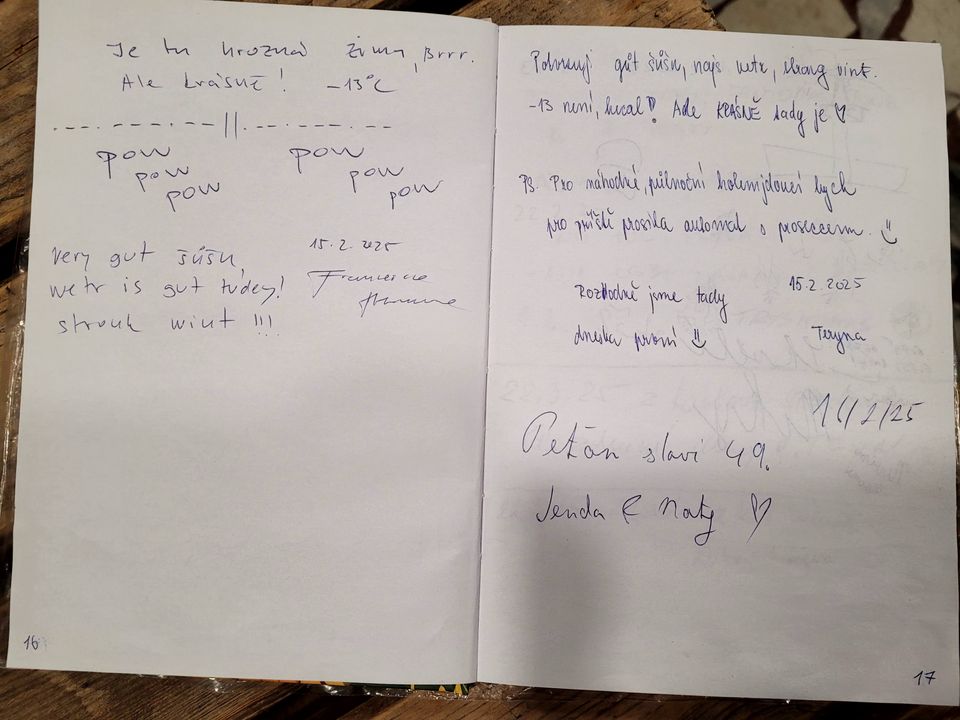 Je tu hrozná zima, Brrr.
Ale krásně! -13°C
pow pow
pow pow
pow pow
Very gut šůšn,
wetr is gut tudey!
stronk wint !!!
15.2.2025
Potvrzuji gůt šůšn, najs vetr, strong vint.
-13 není, kecal! Ale KRÁSNĚ tady je ♡
PS. Pro náhodné, půlnoční kolemjdoucí bych
pro příště prosila automat o proseccem.
Rozhodně jsme tady
dneska první
15.2.2025
Teryna
16/2/25
Peťan slaví 49.
Jenda & Naty ♡
16
17